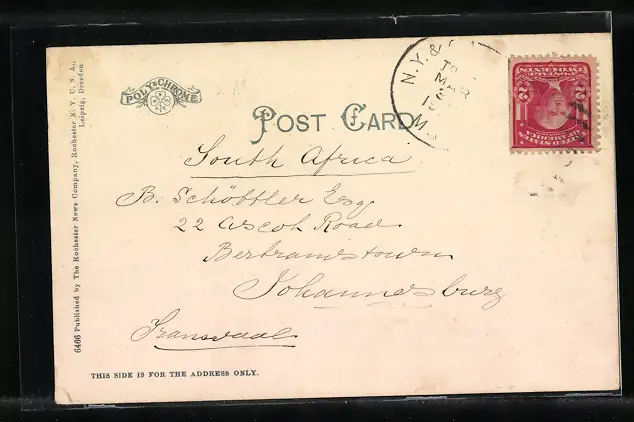 POLYCHROME
POST CARD
N.Y. &
MAR
South Africa
B. Schöttler Esq.
22 Ascot Road
Bertramstown
Johannesburg
Transvaal
THIS SIDE IS FOR THE ADDRESS ONLY.
6466 Published by The Rochester News Company, Rochester N. Y. U. S. A.,
Leipzig, Dresden
UNITED STATES
OF AMERICA
2 2